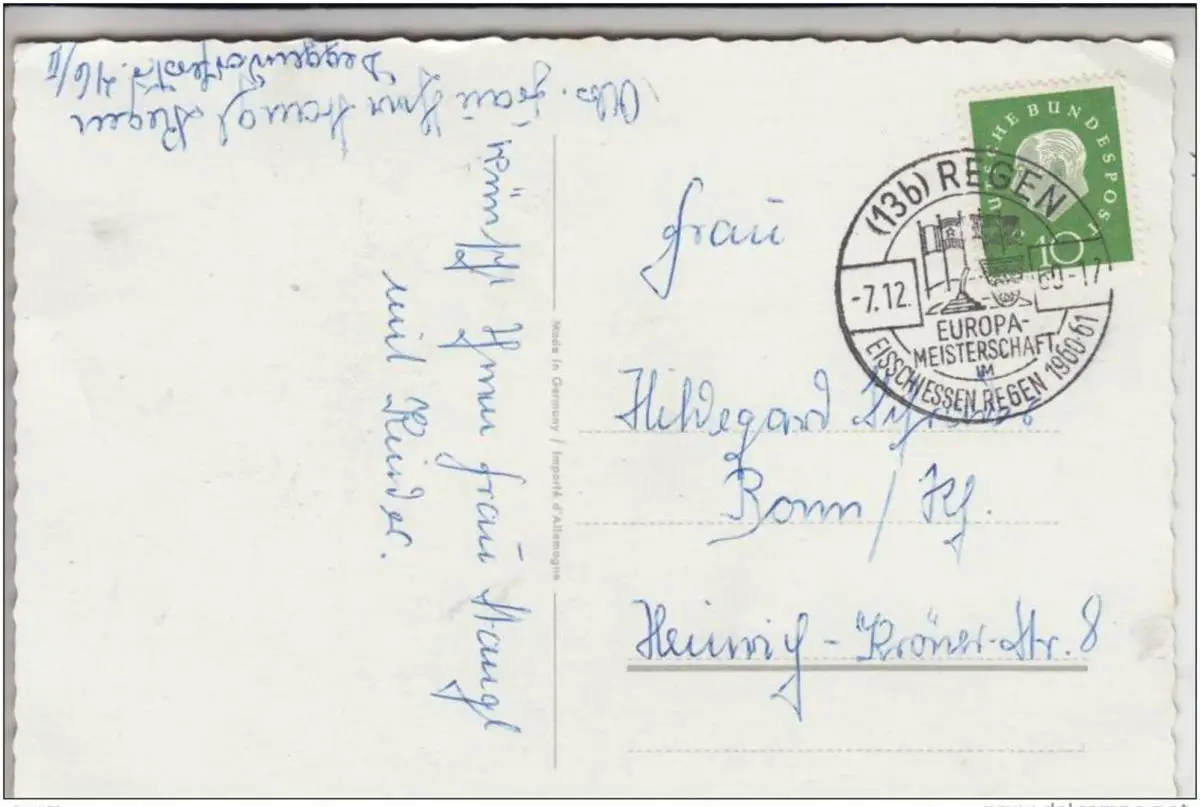 Abs. Frau Stangl Regen
Deggendorferstr. 46/II
wünscht Ihnen Frau Stangl
mit Kinder.
Made in Germany / Importé d'Allemagne
DEUTSCHE BUNDESPOST
10
(13b) REGEN
-7.12. 60-17
EUROPA-
MEISTERSCHAFT
IM
EISSCHIESSEN REGEN 1960·61
Frau
Hildegard
Bonn / Rh.
Heinrich-Kröner-Str. 8